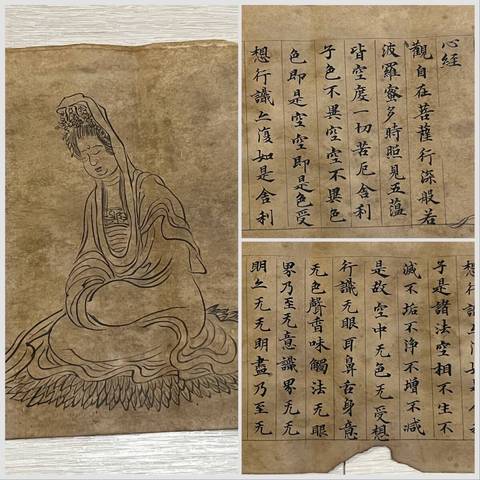 心經
觀自在菩薩行深般若
波羅蜜多時照見五蘊
皆空度一切苦厄舍利
子色不異空空不異色
色即是空空即是色受
想行識亦復如是舍利
子是諸法空相不生不
滅不垢不淨不增不減
是故空中无色无受想
行識无眼耳鼻舌身意
无色聲香味觸法无眼
界乃至无意識界无无
明亦无无明盡乃至无